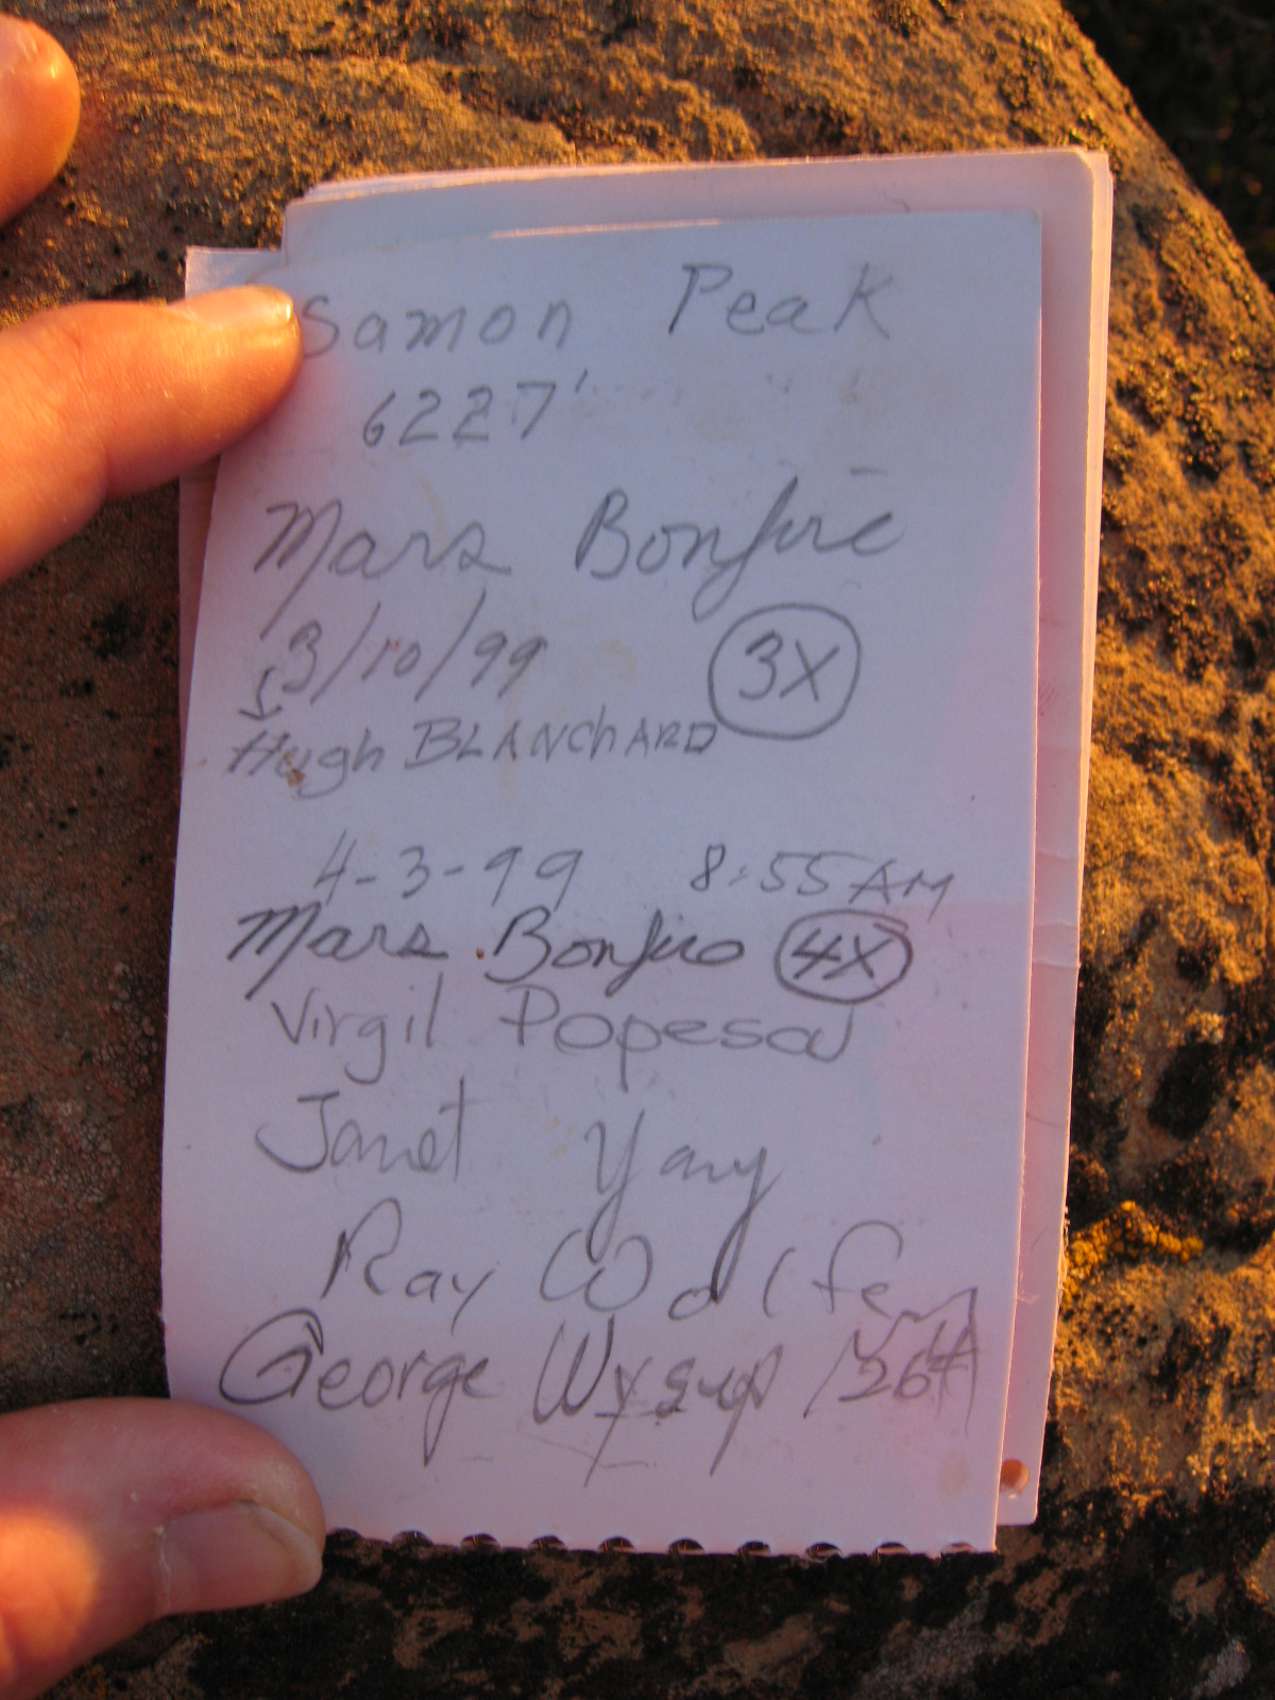 Samon Peak
6227'
Mars Bonfire
3/10/99 3X
Hugh BLANChARD
4-3-99 8:55 AM
Mars Bonfire 4X
Virgil Popescu
Janet Yang
Ray Wolfe
George Wysup